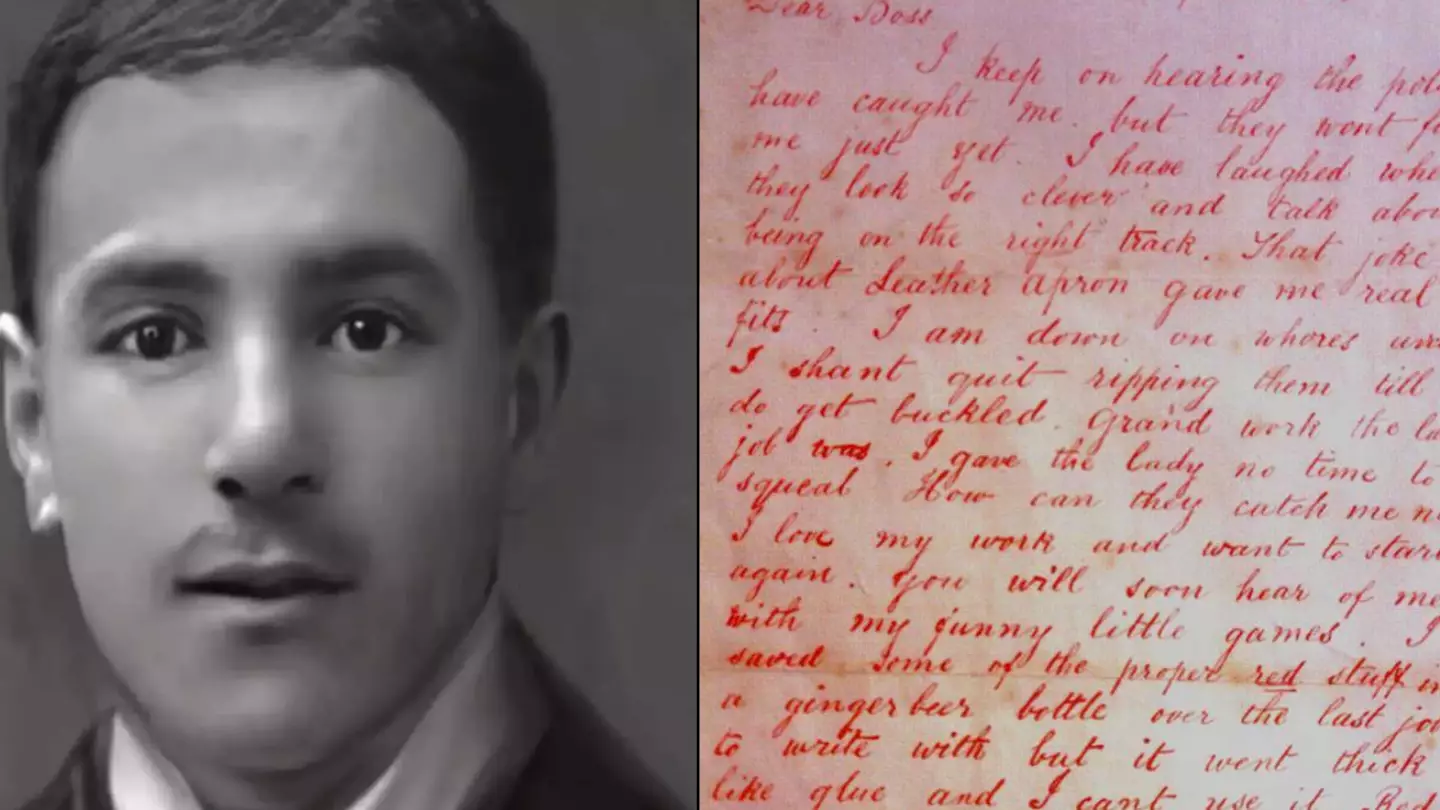 Dear Boss
I keep on hearing the pol
have caught me. but they wont f
me just yet. I have laughed whe
they look so clever and talk abou
being on the right track. That joke
about Leather apron gave me real
fits. I am down on whores an
I shant quit ripping them till
do get buckled. Grand work the la
job was. I gave the lady no time to
squeal How can they catch me n
I love my work and want to star
again. you will soon hear of me
with my funny little games. I
saved some of the proper red stuff in
a ginger beer bottle over the last jo
to write with but it went thick
like glue and I cant use it Red